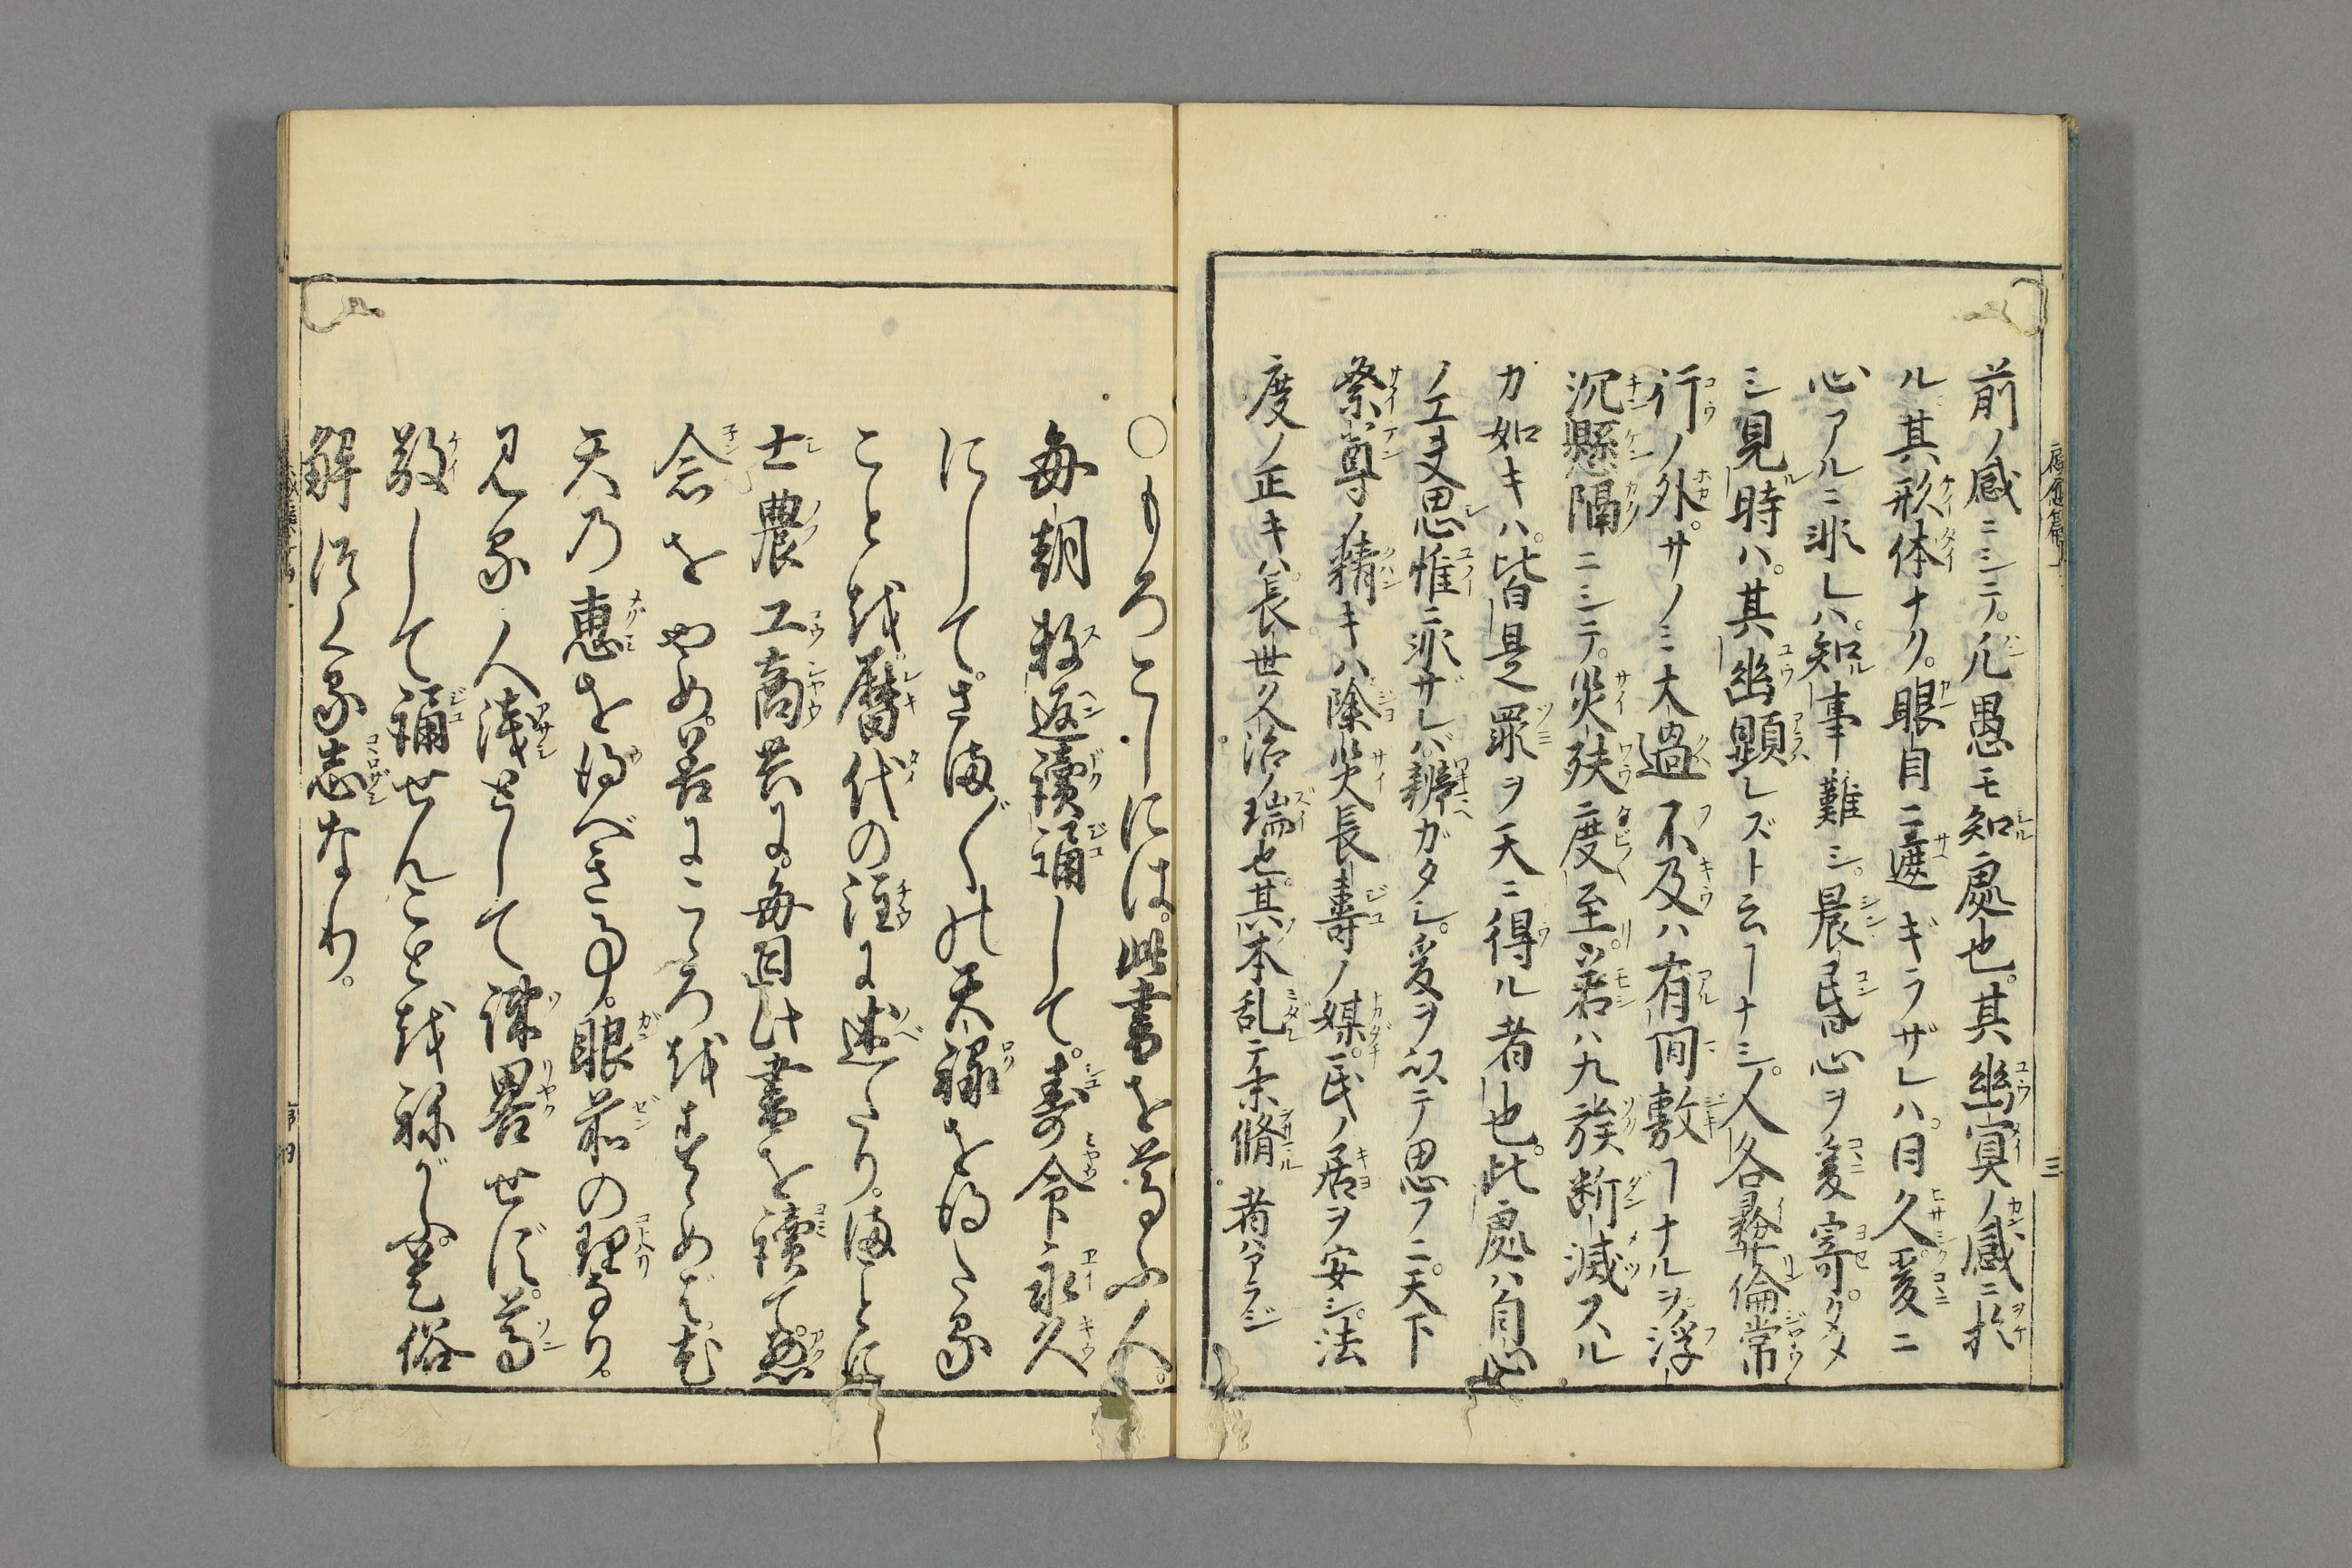 前ノ感ニシテ。凡愚モ知處也。其幽冥ノ感ニ於
ル其形体ナク。眼目ニ遮ギラザレハ。日久爰ニ
心アルニ非レハ。知事難シ。晨昏心ヲ爰寄。タメ
シ見時ハ。其幽顕レズト云ヿナシ。人各彜倫常
行ノ外。サノミ大過不及ハ有間敷ヿナルヲ。浮
沉懸隔ニシテ。災殃度至。若ハ九族断滅スル
カ如キハ。皆是罪ヲ天ニ得ル者也。此處ハ自心
ノ工夫思惟ニ非ザレバ辨ガタシ。爰ヲ以テ思フニ。天下
祭尊ノ精キハ除災長壽ノ媒。民ノ居ヲ安シ。法
度ノ正キハ。長世久治ノ瑞也。其本乱テ末脩者ハアラジ
○もろこしには。此書を尊ふ人。
毎朝数返讀誦して。壽命永久
にして。さま〴〵の天禄を得たる
こと越。暦代の注に述たり。
士農工商共に。毎日此書を讀て。悪
念をやめ。善にこゝろ越すゝめば。
天の恵を得べき事。眼前の理なり。
見る人淺として謀畧せず。尊
敬して誦せんこと越ねがふ。
解しるく志なり。
感應篇
三